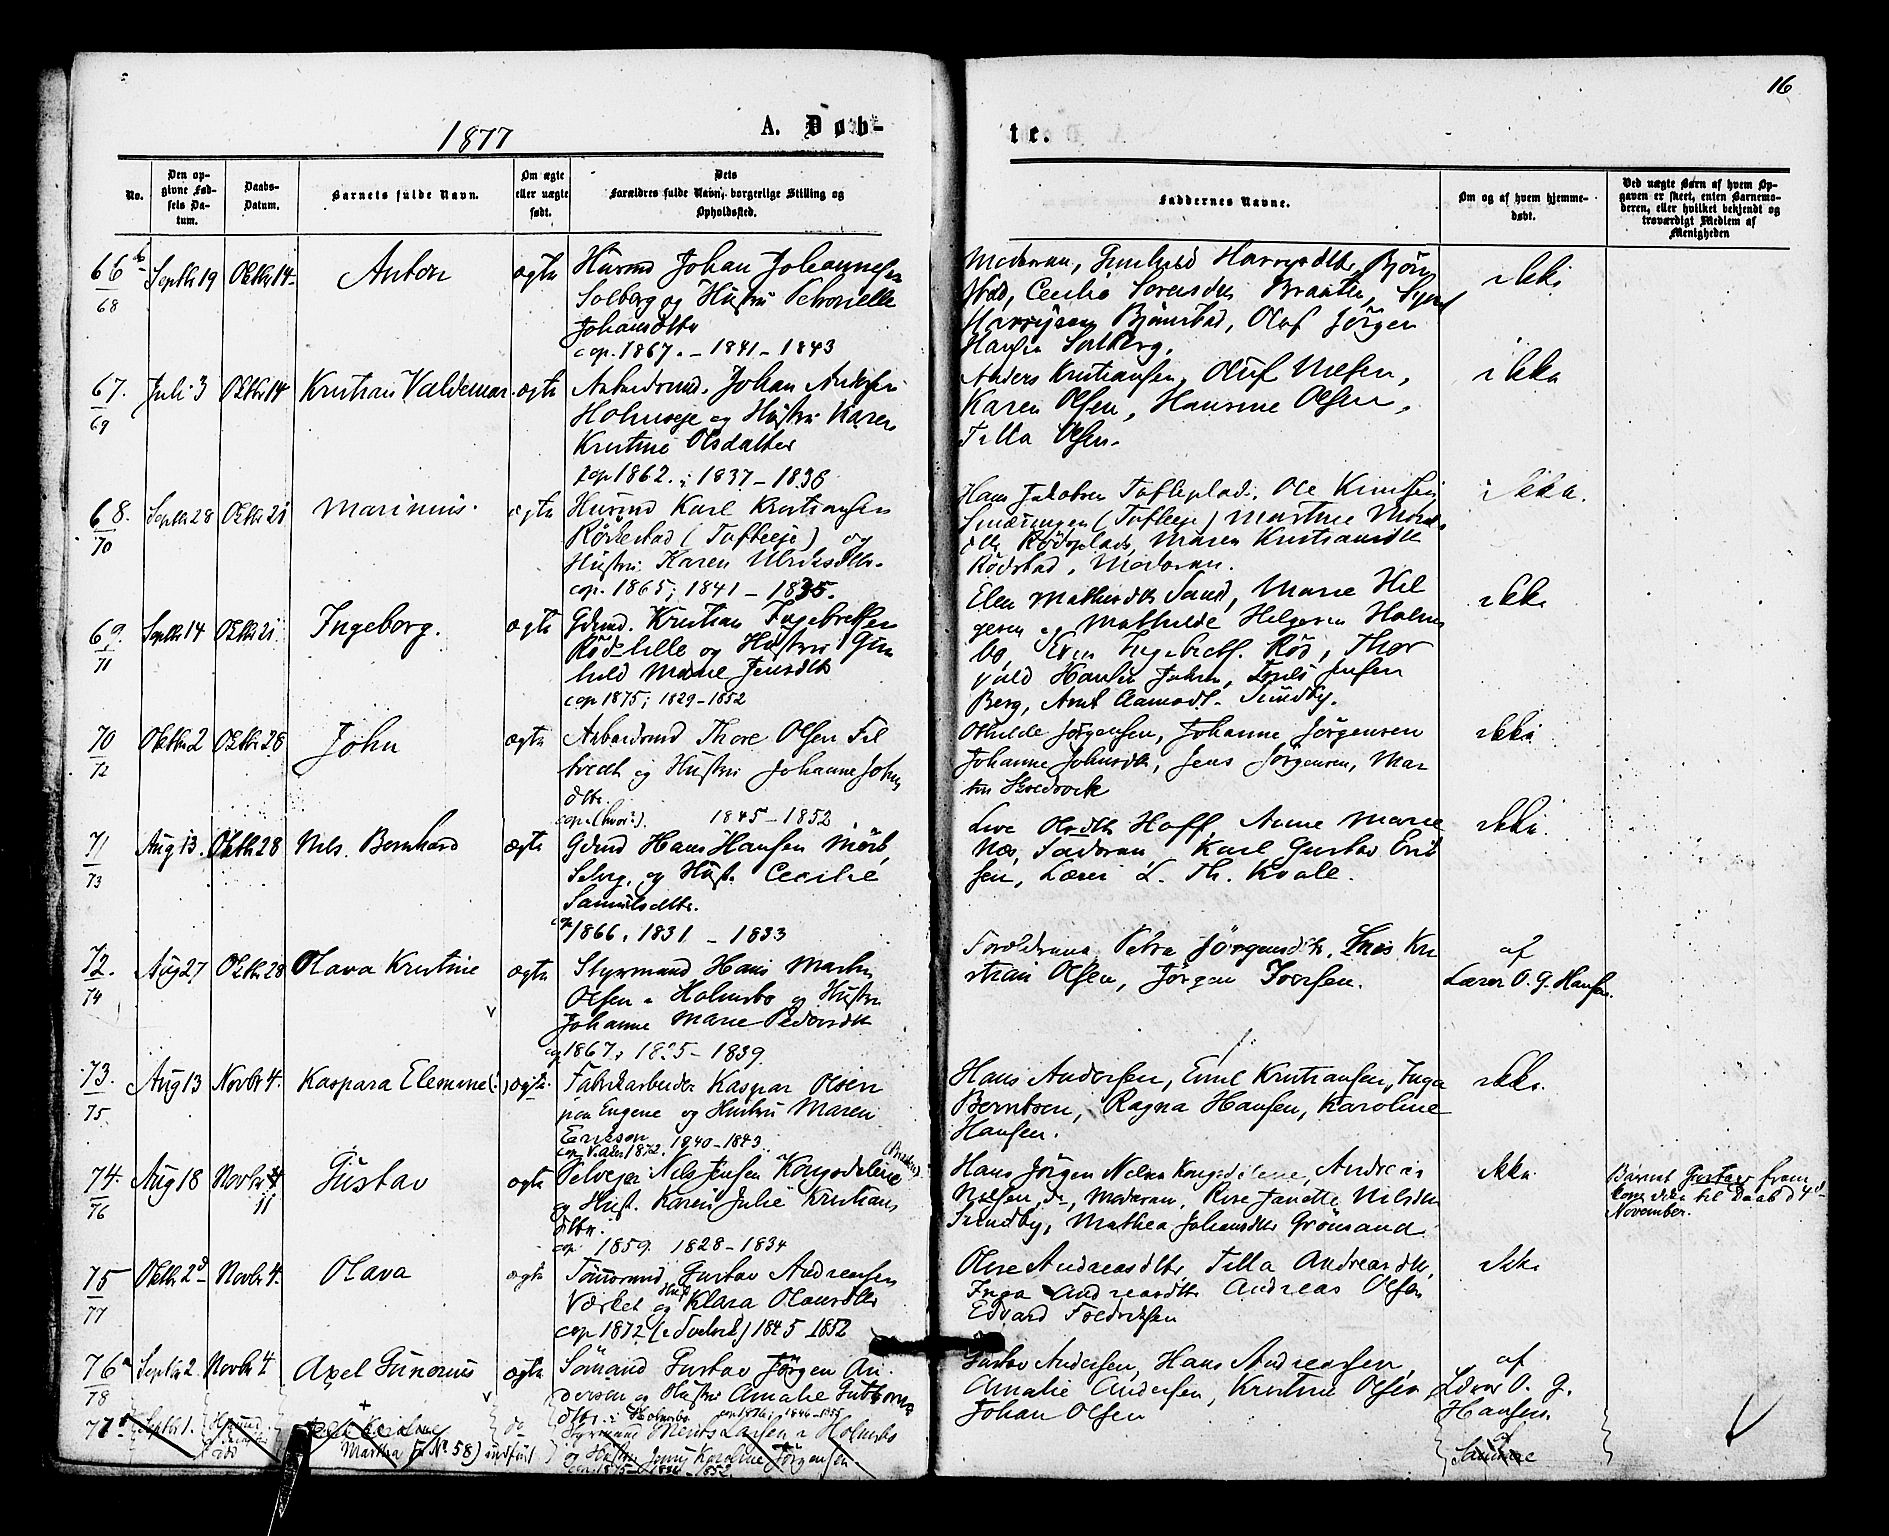 16
1877
A. Døb-
te.
No.
Den op-
givne Fød-
sels Da-
tum.
Daabs-
Datum.
Barnets fulde Navn.
Om ægte
eller uægte
født.
Dets
Forældres fulde Navn, borgerlige Stilling og
Opholdssted.
Faddernes Navne.
Om og af hvem hjemme-
døbt.
Ved uægte Børn af hvem Op-
gaven er skeet, enten Barnemo-
deren, eller hvilket bekjendt og
troværdigt Medlem af
Menigheden
66
68
Septbr 19
Oktbr 14
Anton
ægte
Husmd Johan Johannesen
Solberg og Hustru Petronelle
Johansdtr
cop. 1867. - 1841 - 1843
Moderen, Gunhild
Cecilie Sorensdtr Braaten,
Bjönstad, Olaf Jörgen
Hansen Solberg.
ikke
67.
69
Juli 3
Oktbr 14
Kristian Valdemar
ægte
Arbeidsmd. Johan Andersen
Holmseje og Hustru Karen
Kristine Olsdatter
cop 1862. ; 1837 - 1838
Anders Kristiansen, Oluf Nielsen,
Karen Olsen, Hansine Olsen,
Tilla Olsen.
ikke
68.
70
Septbr 28
Oktbr 21
Marinius.
ægte
Husmd Karl Kristiansen
Rödestad (Tofteeje) og
Hustru Karen Ulriksdtr.
cop. 1865; 1841 - 1835.
Hans Jakobsen Tofteplads, Ole
(Tofteeje) Martine
Rödsplads, Maren Kristiansdtr
Rödstad, Moderen.
ikke.
69.
71
Septbr 14
Oktbr 21
Ingeborg.
ægte
Gdmd. Kristian Ingebretsen
Röd lille og Hustru Gun
hild Marie Jensdtr
cop 1875; 1829-1852
Elen Mathisdtr Sand, Marie Hel
gesen og Mathilde Helgesen Holms
bo, Even Ingebretsen Röd, Thor
vald Hansen Jensen
Berg, Arnt Aamodt. Sundby.
ikke
70
72
Oktbr 2
Oktbr 28
John
ægte
Arbeidsmd Thore Olsen Fil
tvedt og Hustru Johanne Johns
dtr.
cop. (hvor?). 1845 - 1852.
Othilde Jörgensen, Johanne Jörgensen
Johanne Johnsdtr, Jens Jörgensen, Mar
tin
ikke
71
73
Aug 13.
Oktbr 28
Nils Bernhard
ægte
Gdmd Hans Hansen Mörk
Selvg. og Hust. Cecilie
Samuelsdtr.
cop 1866. 1831 - 1833
Live Olsdtr Hoff, Anne Marie
Næs, Faderen, Karl Gustav Erik
sen, Lærer L. Th. Kvale.
ikke.
72.
74
Aug 27
Oktbr 28
Olava Kristine
ægte
Styrmand Hans Martin
Olsen i Holmsbo og Hustru
Johanne Marie Pedersdtr
cop 1867, - 1839.
Forældrene, Petra Jörgensdtr, Kri
stian Olsen, Jörgen Iversen.
af
Lærer O. G. Hansen.
73.
75.
Aug 13
Novbr 4.
Kaspara Elemine
ægte.
Fabrikarbeider Kaspar Olsen
paa Engene og Hustru Maren
Erikson
1872. 1840 - 1843
Hans Andersen, Emil Kristiansen, Inga
Berntsen, Ragna Hansen, Karoline
Hansen.
ikke.
74.
76
Aug 18
Novbr 4
11
Gustav
ægte
Selvejer Nils Jensen Kongsdelene
og Hust. Karen Julie Kristians
dtr.
cop. 1859. 1828 - 1834
Hans Jörgen Nilsen Kongsdelene, Andreas
Nilsen, do, Moderen, Jeanette Nilsdtr
Sundby, Mathea Johansdtr Grönsand.
ikke
Barnet Gustav frem
kom ikke til Daab d 4de
November.
75
77
Oktbr 2
Novbr 4.
Olava
ægte
Tömmermd Gustav Andreasen
Værket og Hust Klara Olausdtr
cop 1872 1845 1852
Oline Andreasdtr, Tilla Andreasdtr,
Inga Andreasdtr Andreas Olsen
Edvard Fredriksen
ikke
76
78
Septbr 2.
Novbr 4
Axel Gunerius
ægte
Sömand Gustav Jörgen An
dersen og Hustru Amalie Guttorms
dtr. i Holmsbo cop 1876; 1846 -
Gustav Andersen, Hans Andreasen,
Amalie Andersen, Kristine Olsen
Johan Olsen
af
Lærer O. G.
Hansen
77
Septbr 1.
Martha (No 58) indfört
do
Styrmand Larsen i Holmsbo
og Hustru Jenny Karoline Jörgensen.
cop. 1875 - 1852